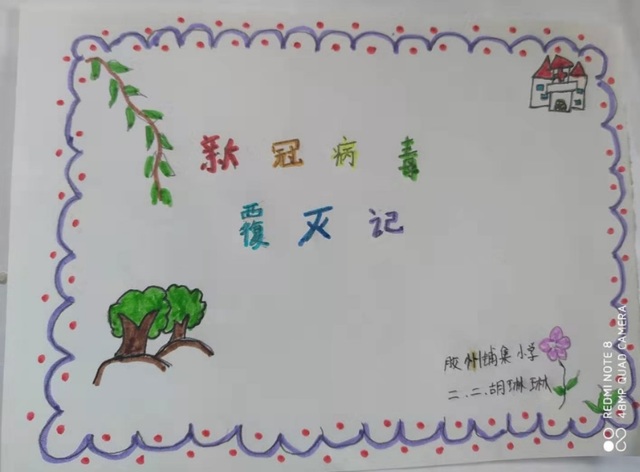 新冠病毒
覆灭记
胶州铺集小学
二.二.胡琳琳
REDMI NOTE 8
48MP QUAD CAMERA